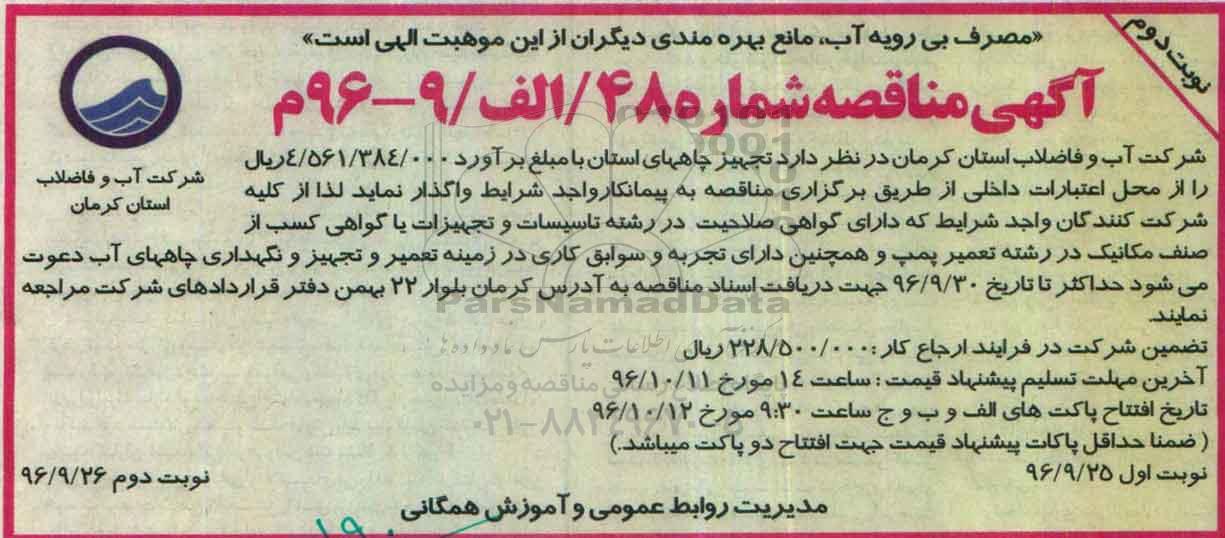 نوبت دوم
«مصرف بی رویه آب، مانع بهره مندی دیگران از این موهبت الهی است»
آگهی مناقصه شماره ۴۸/الف/۹-۹۶م
شرکت آب و فاضلاب
استان کرمان
شرکت آب و فاضلاب استان کرمان در نظر دارد تجهیز چاههای استان با مبلغ برآورد ۴/۵۶۱/۳۸۴/۰۰۰ریال
را از محل اعتبارات داخلی از طریق برگزاری مناقصه به پیمانکارواجد شرایط واگذار نماید لذا از کلیه
شرکت کنندگان واجد شرایط که دارای گواهی صلاحیت در رشته تاسیسات و تجهیزات یا گواهی کسب از
صنف مکانیک در رشته تعمیر پمپ و همچنین دارای تجربه و سوابق کاری در زمینه تعمیر و تجهیز و نگهداری چاههای آب دعوت
می شود حداکثر تا تاریخ ۹۶/۹/۳۰ جهت دریافت اسناد مناقصه به آدرس کرمان بلوار ۲۲ بهمن دفتر قراردادهای شرکت مراجعه
نمایند.
تضمین شرکت در فرایند ارجاع کار :۲۲۸/۵۰۰/۰۰۰ ریال
آخرین مهلت تسلیم پیشنهاد قیمت : ساعت ۱۴ مورخ ۹۶/۱۰/۱۱
تاریخ افتتاح پاکت های الف و ب و ج ساعت ۹:۳۰ مورخ ۹۶/۱۰/۱۲
( ضمنا حداقل پاکات پیشنهاد قیمت جهت افتتاح دو پاکت میباشد.)
نوبت اول ۹۶/۹/۲۵
نوبت دوم ۹۶/۹/۲۶
مدیریت روابط عمومی و آموزش همگانی
ParsNamadData